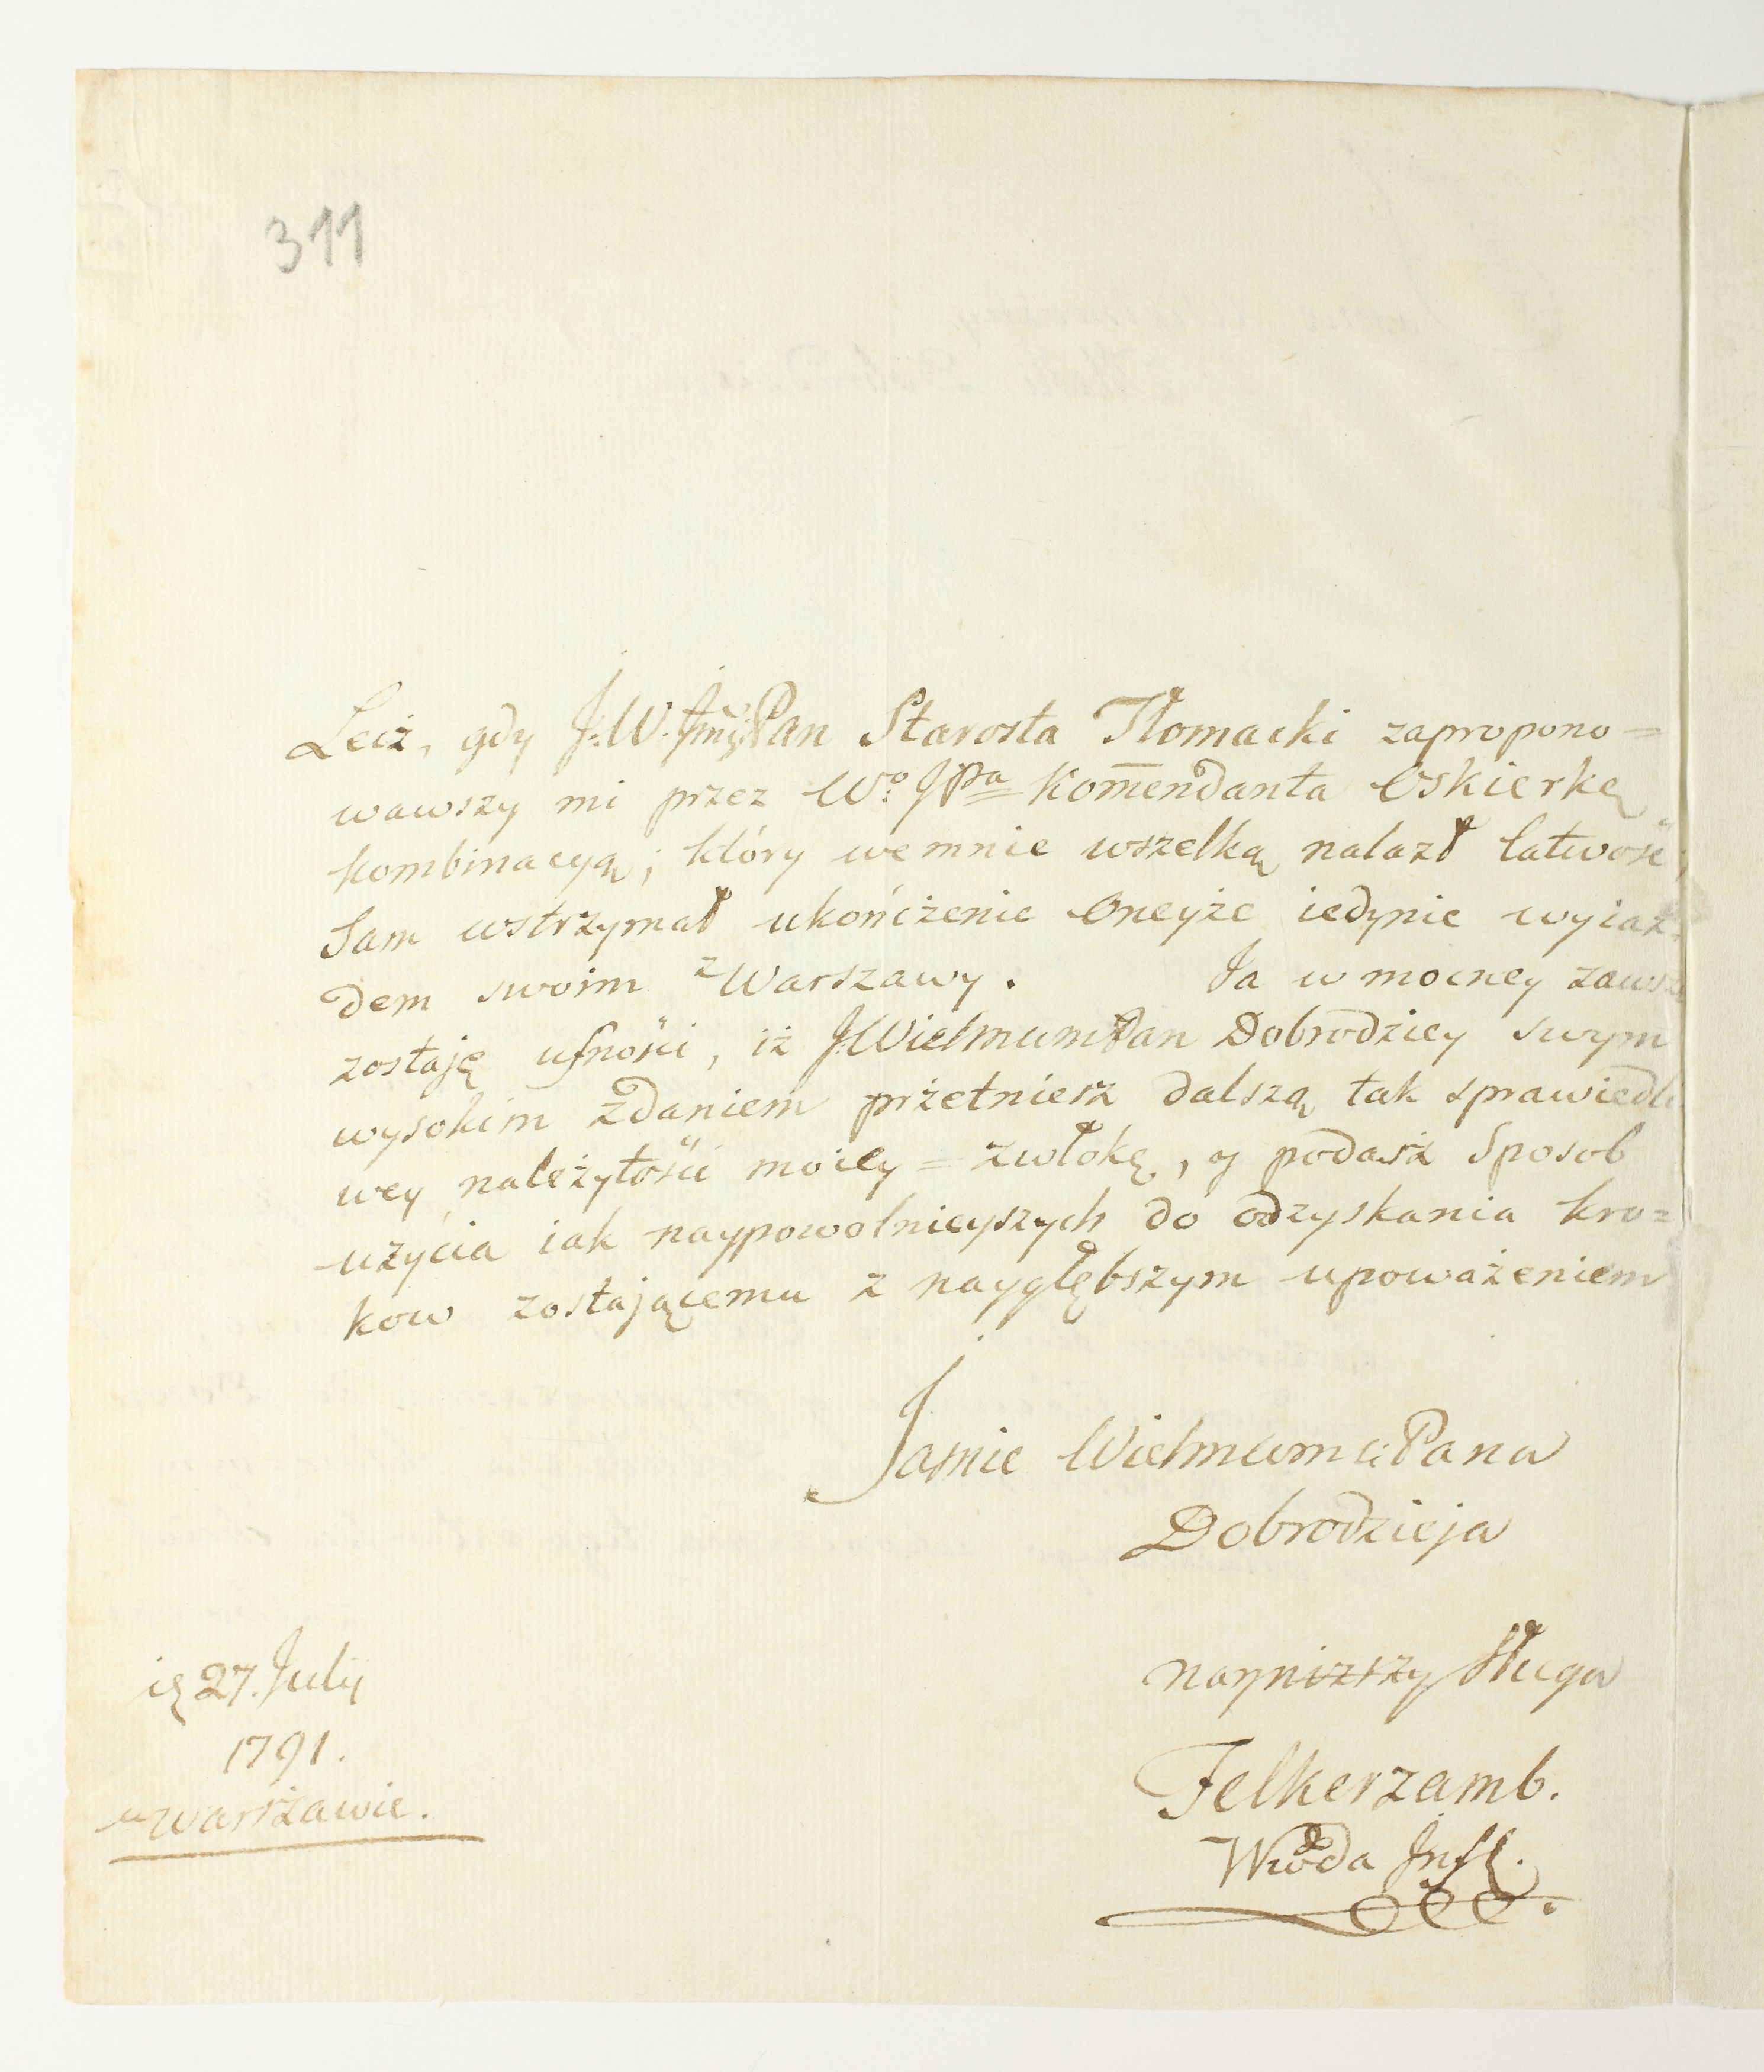 311
Leiż, gdy J:W. Jmć Pan Starosta Tłomacki zapropono=
wawszy mi przez Wo: JPa Kom̅endanta Oskierkę
kombinacyą; który we mnie wszelką nalazł łatwość;
Sam wstrzymał ukońiżenie Oneyże iedynie wyiaz=
dem swoim z Warszawy. Ja w mocney zawsze
zostaję ufności, iż J:WielmumPan Dobrodziey swym
wysokim zdaniem prżetniesz dalszą tak sprawiedli
wey należytości moiey = zwłokę, y podasz Sposob
użycia iak naypowolnieyszych do odzyskania kro=
kow zostającemu z naygłębszym upoważeniem
Jaśnie Wielmumu: Pana
Dobrodzieja
nayniższy Sługa
27. Julij
1791.
w Warszawie.
Felkerzamb.
Wwoda Infl.